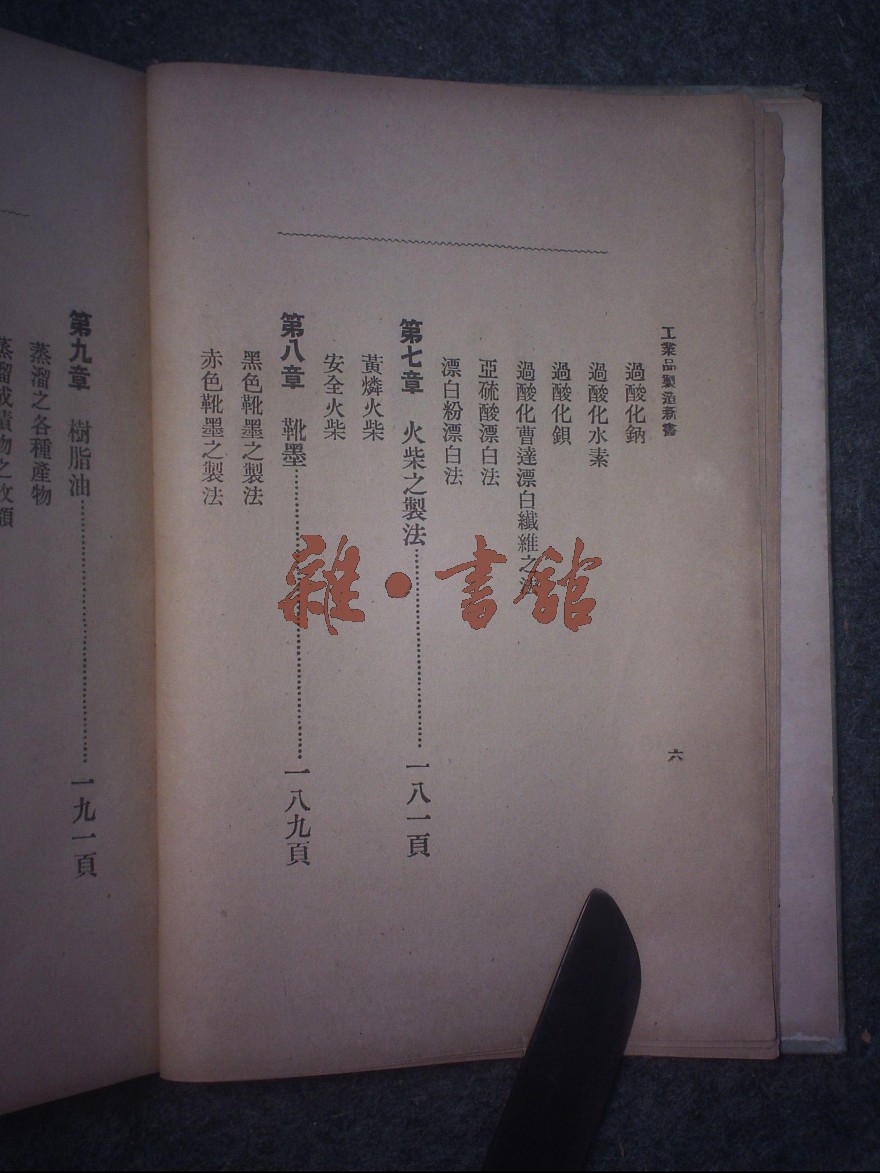 工業品製造新書
六
過酸化鈉
過酸化水素
過酸化鋇
過酸化曹達漂白纖維之法
亞硫酸漂白法
漂白粉漂白法
第七章 火柴之製法 一八一頁
黃燐火柴
安全火柴
第八章 靴墨 一八九頁
黑色靴墨之製法
赤色靴墨之製法
第九章 樹脂油 一九一頁
蒸溜之各種產物
蒸溜成績物之收額
雜·書館